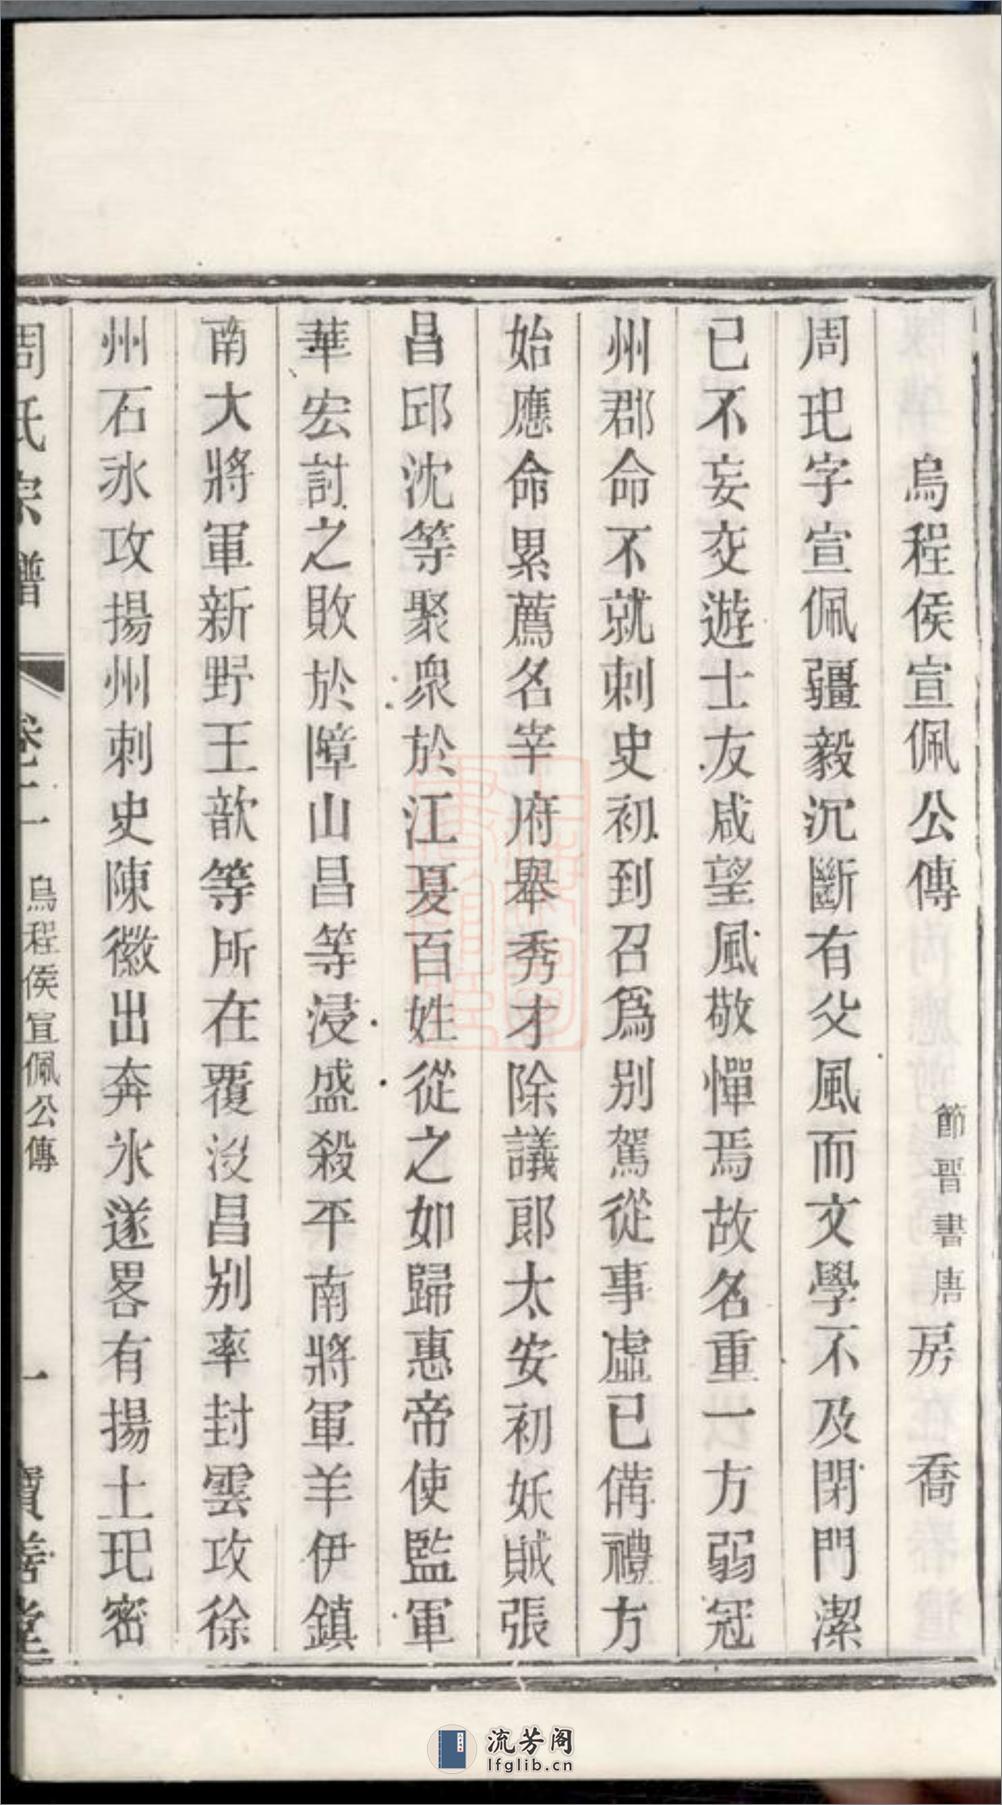 烏程侯宣佩公傳 節晉書唐房 喬
周玘字宣佩疆毅沉斷有父風而文學不及閉門潔
已不妄交遊士友咸望風敬憚焉故名重一方弱冠
州郡命不就刺史初到召爲別駕從事虛已備禮方
始應命累薦名宰府舉秀才除議郎太安初妖賊張
昌邱沈等聚衆於江夏百姓從之如歸惠帝使監軍
華宏討之敗於障山昌等浸盛殺平南將軍羊伊鎮
南大將軍新野王歆等所在覆没昌別率封雲攻徐
州石氷攻揚州刺史陳徽出奔氷遂畧有揚土玘密
周氏宗譜 卷十一 烏程侯宣佩公傳 一 寶善堂
流芳阁
lfglib.cn